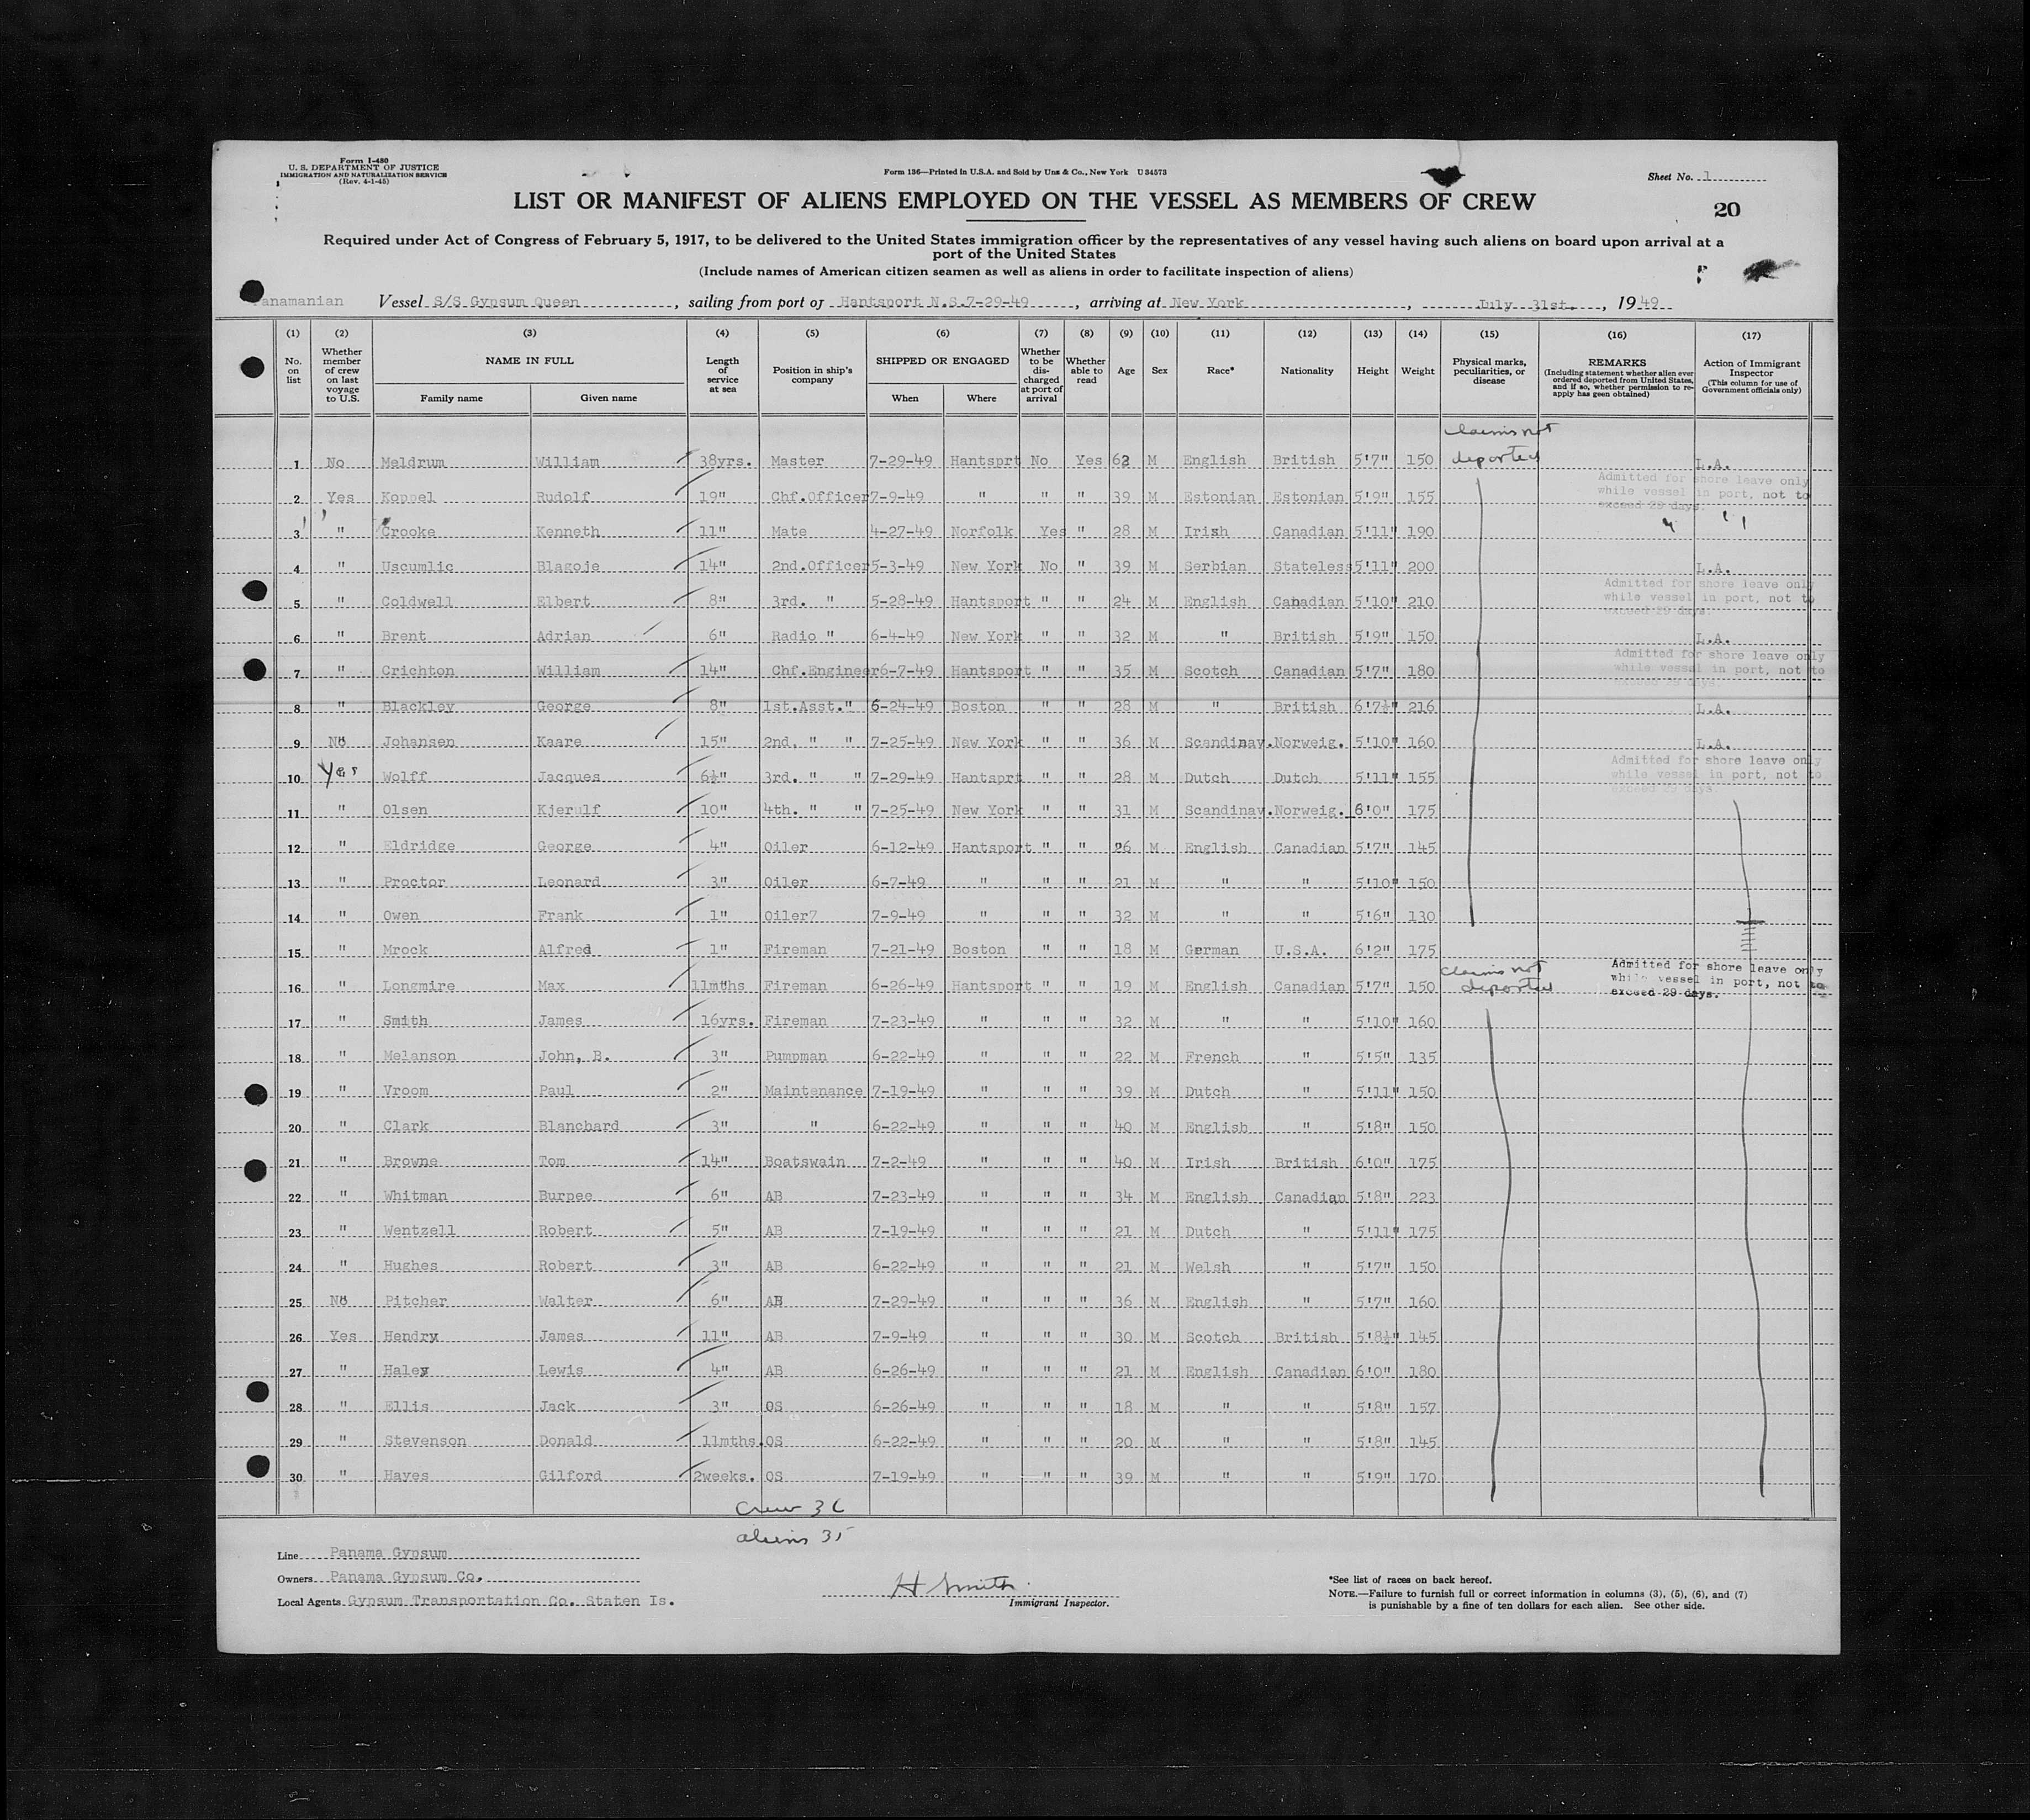 Form I-480
U. S. DEPARTMENT OF JUSTICE
IMMIGRATION AND NATURALIZATION SERVICE
(Rev. 4-1-45)
Form 136—Printed in U.S.A. and Sold by Unz & Co., New York U 34573
Sheet No. 1
LIST OR MANIFEST OF ALIENS EMPLOYED ON THE VESSEL AS MEMBERS OF CREW
20
Required under Act of Congress of February 5, 1917, to be delivered to the United States immigration officer by the representatives of any vessel having such aliens on board upon arrival at a
port of the United States
(Include names of American citizen seamen as well as aliens in order to facilitate inspection of aliens)
anamanian Vessel S/S Gypsum Queen, sailing from port of Hantsport N.S.7-29-49, arriving at New York, July 31st., 1949
(1) (2) (3) (4) (5) (6) (7) (8) (9) (10) (11) (12) (13) (14) (15) (16) (17)
No. on list
Whether member of crew on last voyage to U.S.
NAME IN FULL
Family name
Given name
Length of service at sea
Position in ship's company
SHIPPED OR ENGAGED
When
Where
Whether to be discharged at port of arrival
Whether able to read
Age
Sex
Race*
Nationality
Height
Weight
Physical marks, peculiarities, or disease
REMARKS
(Including statement whether alien ever ordered deported from United States, and if so, whether permission to reapply has geen obtained)
Action of Immigrant Inspector
(This column for use of Government officials only)
claims not
1 No Meldrum William 38yrs. Master 7-29-49 Hantsprt No Yes 62 M English British 5'7" 150 deported L.A.
Admitted for shore leave only
while vessel in port, not to
exceed 29 days.
2 Yes Koppel Rudolf 19" Chf.Officer 7-9-49 " " " 39 M Estonian Estonian 5'9" 155
3 " Crooke Kenneth 11" Mate 4-27-49 Norfolk Yes " 28 M Irish Canadian 5'11" 190 " " "
4 " Uscumlic Blagoje 14" 2nd.Officer 5-3-49 New York No " 39 M Serbian Stateless 5'11" 200 L.A.
Admitted for shore leave only
while vessel in port, not to
exceed 29 days.
5 " Coldwell Elbert 8" 3rd. " 5-28-49 Hantsport " " 24 M English Canadian 5'10" 210
6 " Brent Adrian 6" Radio " 6-4-49 New York " " 32 M " British 5'9" 150 L.A.
Admitted for shore leave only
while vessel in port, not to
exceed 29 days.
7 " Crichton William 14" Chf.Engineer 6-7-49 Hantsport " " 35 M Scotch Canadian 5'7" 180
8 " Blackley George 8" 1st.Asst." 6-24-49 Boston " " 28 M " British 6'7½" 216 L.A.
9 No Johansen Kaare 15" 2nd. " " 7-25-49 New York " " 36 M Scandinav. Norweig. 5'10" 160 L.A.
Admitted for shore leave only
while vessel in port, not to
exceed 29 days.
10 Yes Wolff Jacques 6½" 3rd. " " 7-29-49 Hantsprt " " 28 M Dutch Dutch 5'11" 155
11 " Olsen Kjerulf 10" 4th. " " 7-25-49 New York " " 31 M Scandinav. Norweig. 6'0" 175
12 " Eldridge George 4" Oiler 6-12-49 Hantsport " " 26 M English Canadian 5'7" 145
13 " Proctor Leonard 3" Oiler 6-7-49 " " " 21 M " " 5'10" 150
14 " Owen Frank 1" Oiler7 7-9-49 " " " 32 M " " 5'6" 130
15 " Mrock Alfred 1" Fireman 7-21-49 Boston " " 18 M German U.S.A. 6'2" 175
claims not
deported
Admitted for shore leave only
while vessel in port, not to
exceed 29 days.
16 " Longmire Max 11mths Fireman 6-26-49 Hantsport " " 19 M English Canadian 5'7" 150
17 " Smith James 16yrs. Fireman 7-23-49 " " " 32 M " " 5'10" 160
18 " Melanson John, B. 3" Pumpman 6-22-49 " " " 22 M French " 5'5" 135
19 " Vroom Paul 2" Maintenance 7-19-49 " " " 39 M Dutch " 5'11" 150
20 " Clark Blanchard 3" " 6-22-49 " " " 40 M English " 5'8" 150
21 " Browne Tom 14" Boatswain 7-2-49 " " " 40 M Irish British 6'0" 175
22 " Whitman Burpee 6" AB 7-23-49 " " " 34 M English Canadian 5'8" 223
23 " Wentzell Robert 5" AB 7-19-49 " " " 21 M Dutch " 5'11" 175
24 " Hughes Robert 3" AB 6-22-49 " " " 21 M Welsh " 5'7" 150
25 No Pitcher Walter 6" AB 7-29-49 " " " 36 M English " 5'7" 160
26 Yes Hendry James 11" AB 7-9-49 " " " 30 M Scotch British 5'8½" 145
27 " Haley Lewis 4" AB 6-26-49 " " " 21 M English Canadian 6'0" 180
28 " Ellis Jack 3" OS 6-26-49 " " " 18 M " " 5'8" 157
29 " Stevenson Donald 11mths. OS 6-22-49 " " " 20 M " " 5'8" 145
30 " Hayes Gilford 2weeks. OS 7-19-49 " " " 39 M " " 5'9" 170
Crew 36
aliens 35
Line Panama Gypsum
Owners Panama Gypsum Co.
Local Agents Gypsum Transportation Co. Staten Is.
H Smith
Immigrant Inspector.
*See list of races on back hereof.
NOTE.—Failure to furnish full or correct information in columns (3), (5), (6), and (7)
is punishable by a fine of ten dollars for each alien. See other side.